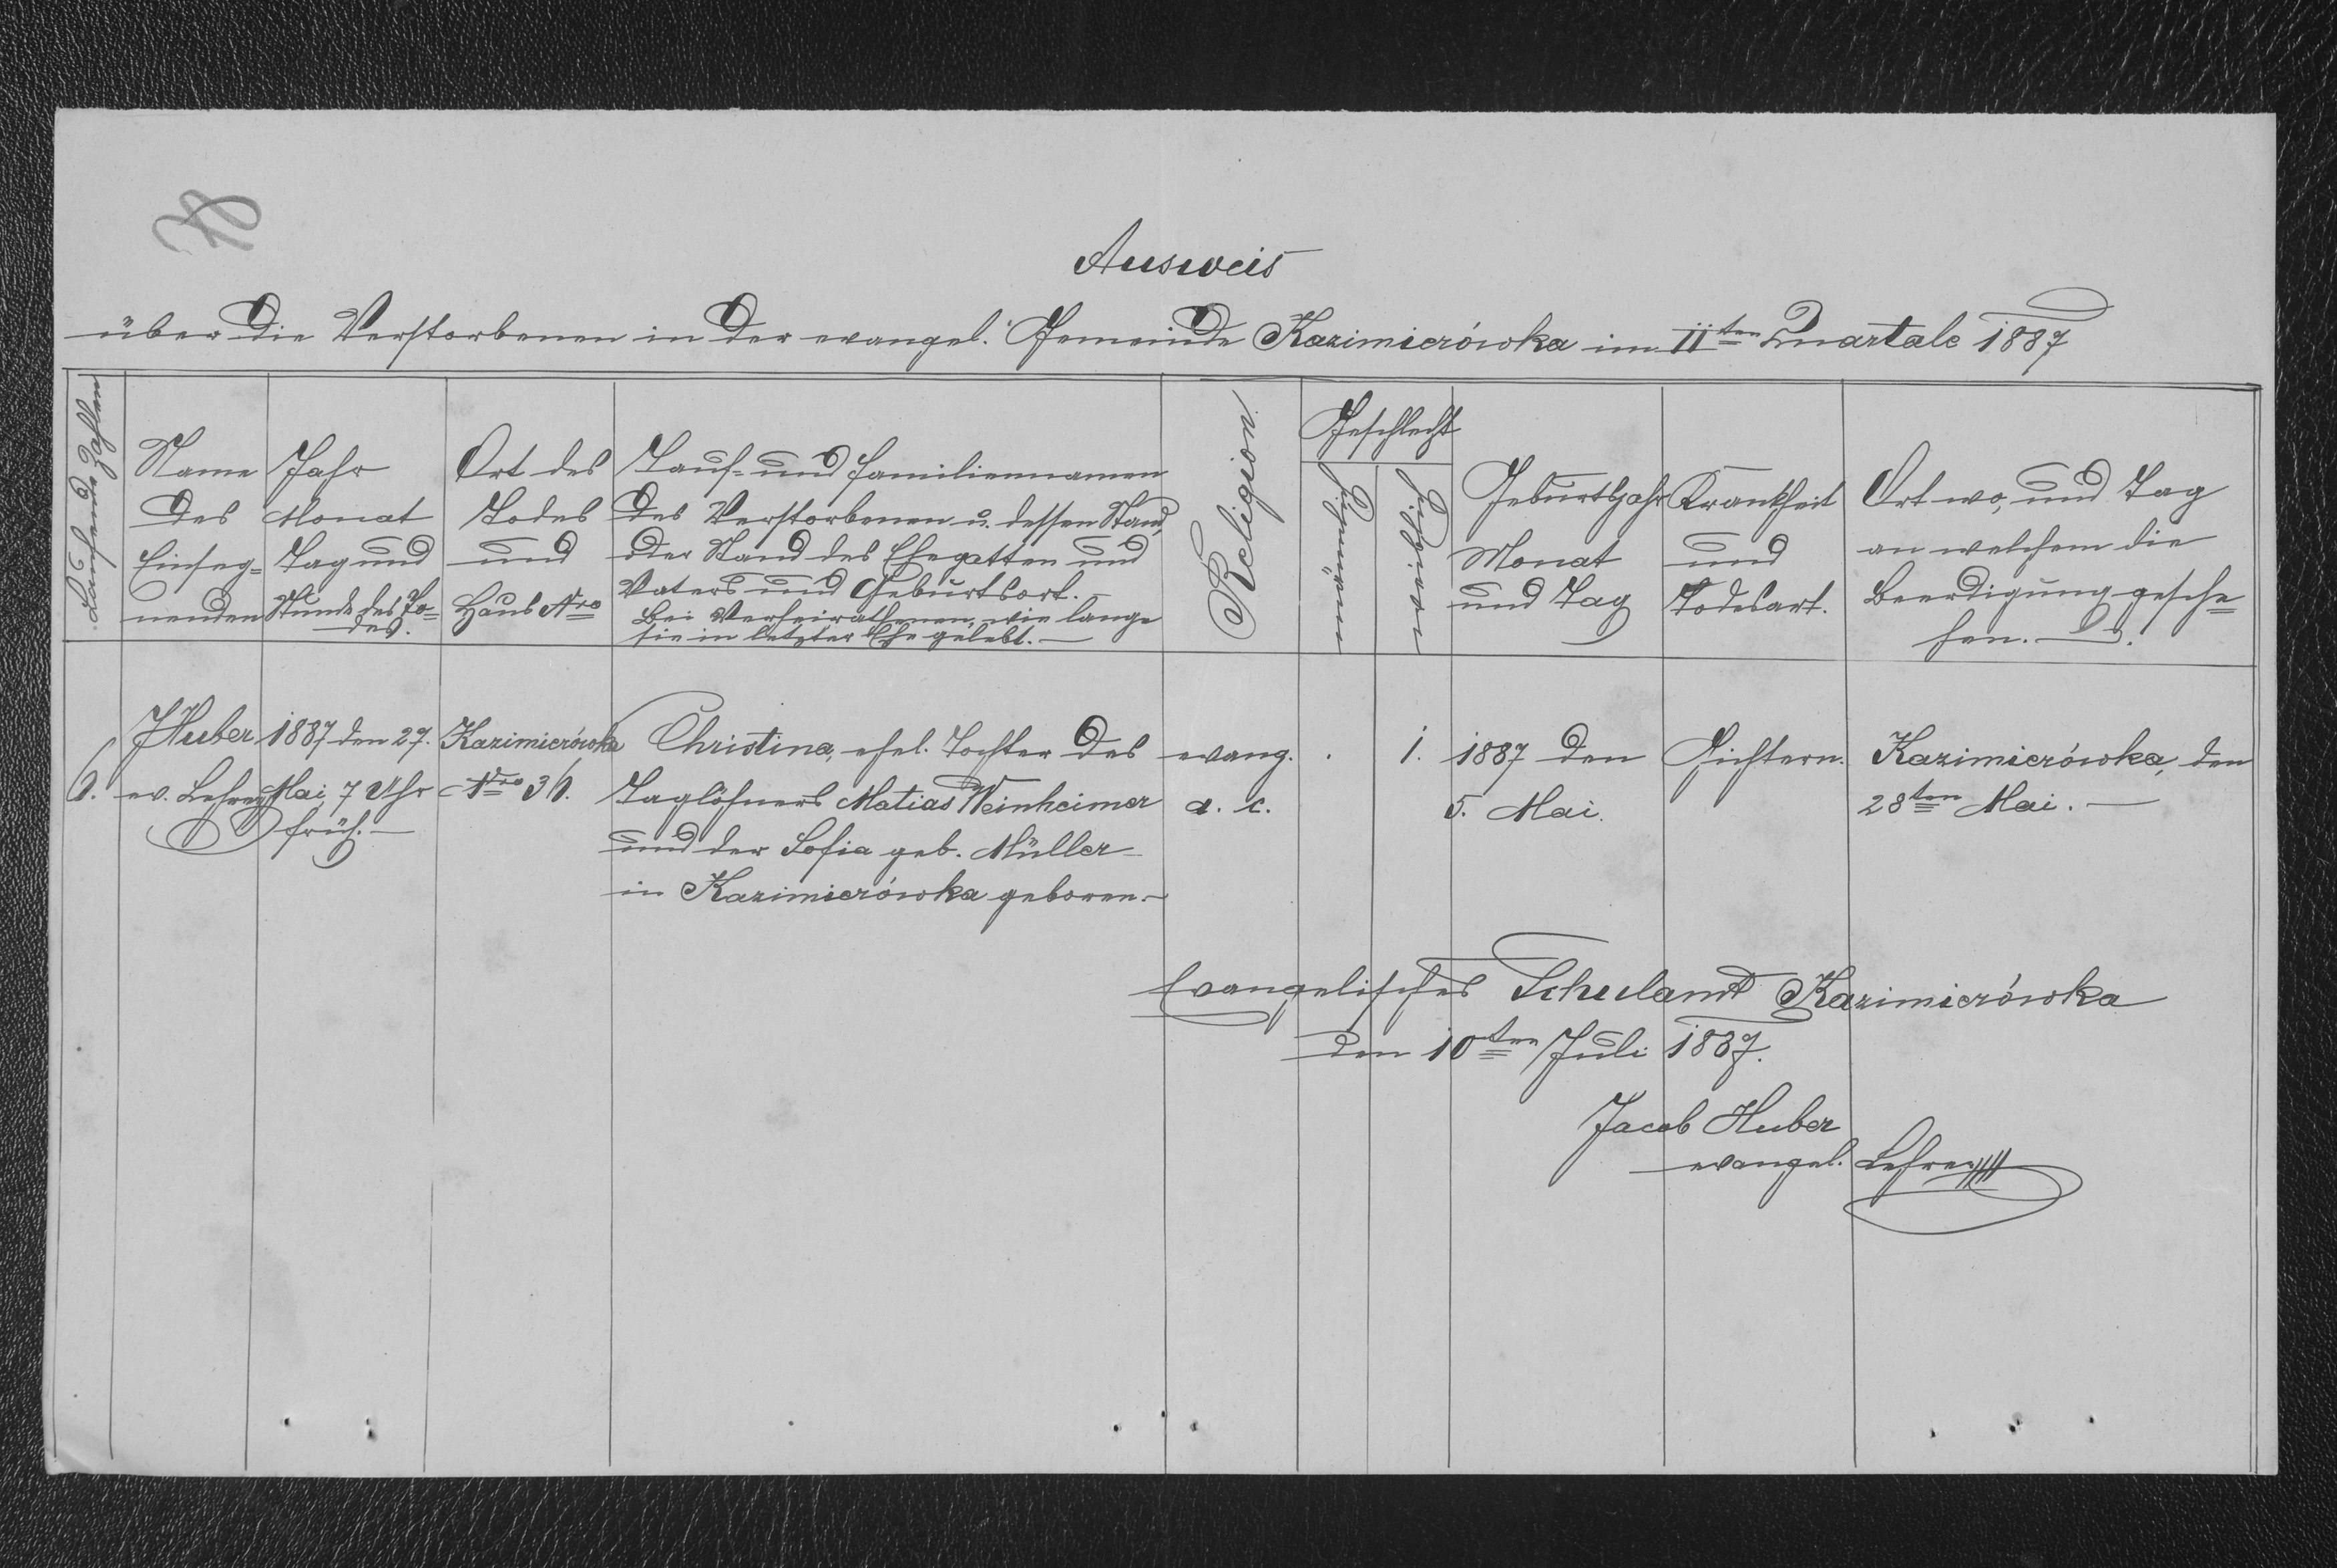 Ausweis
über die Verstorbenen in der evangel. Gemeinde Kazimierówka im IIten Quartale 1887
Laufende Zahlen
Name
des
Einseg-
nenden
Jahr
Monat
Tag und
Stunde des To-
des.
Ort des
Todes
und
Haus Nro
Tauf- und Familiennamen
des Verstorbenen u. dessen Stand,
der Stand des Ehegatten und
Vaters und Geburtsort.
Bei Verheiratheten, wie lange
sie in letzter Ehe gelebt. —
Religion.
Geschlecht
Männlich
Weiblich
Geburtsjahr
Monat
und Tag
Krankheit
und
Todesart.
Ort wo, und Tag
an welchem die
Beerdigung gesche-
hen. —
6.
JHuber
ev. Lehrer
1887 den 27.
Mai, 7 Uhr
früh. —
Kazimierówka
Nro 36.
Christina, ehel. Tochter des
Taglöhners Matias Weinheimer
und der Sofia geb. Müller
in Kazimierówka geboren. —
evang.
a. c.
.
1.
1887 den
5. Mai.
Gichtern.
Kazimierówka, den
28ten Mai. —
Evangelisches Schulamt Kazimierówka
den 10ten Juli 1887.
Jacob Huber
evangel. Lehrer